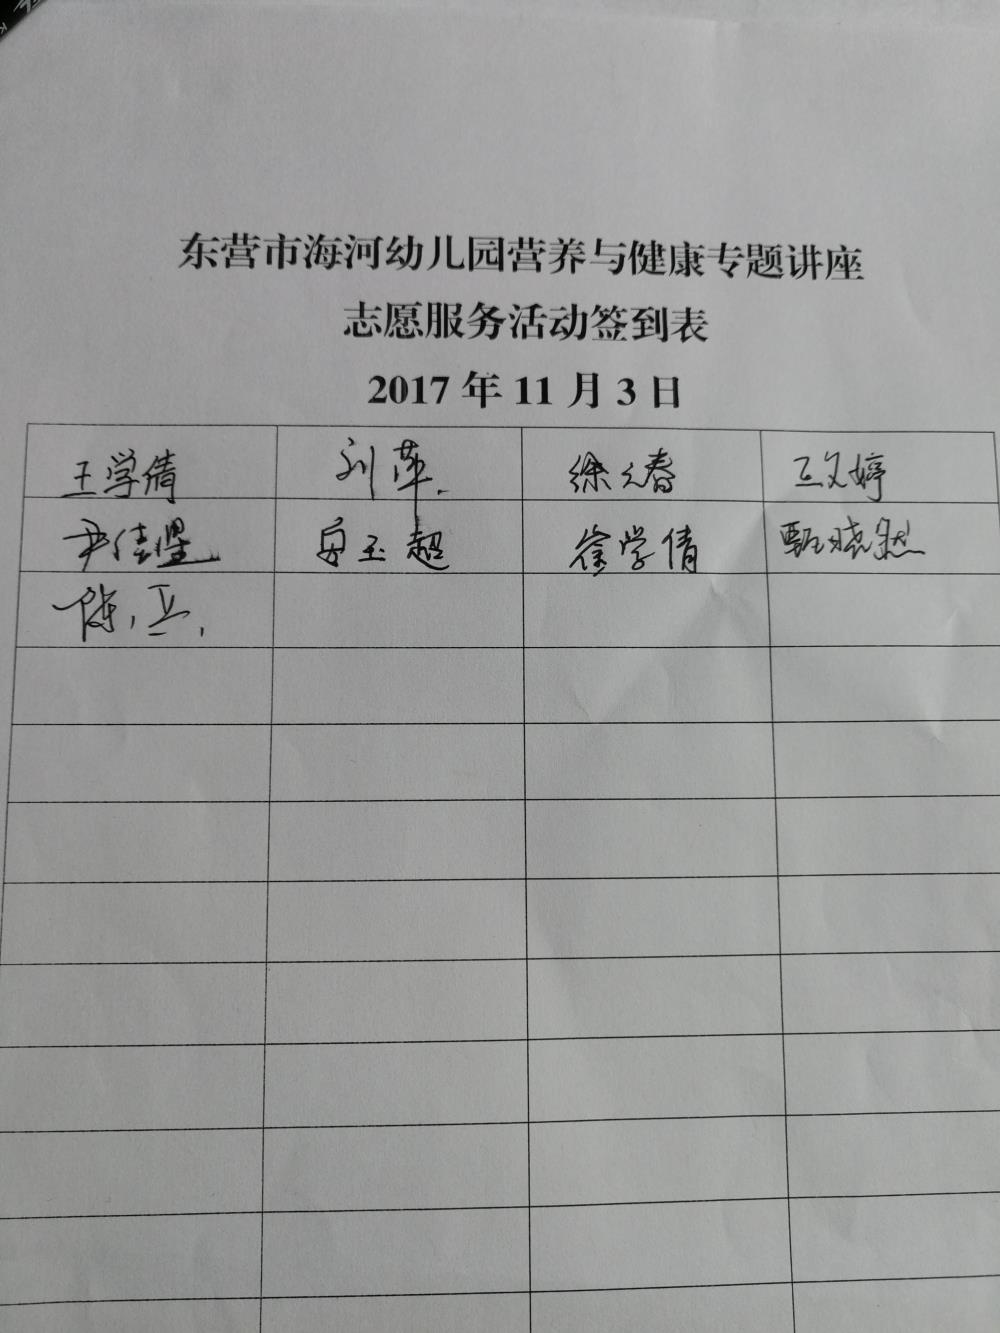 东营市海河幼儿园营养与健康专题讲座
志愿服务活动签到表
2017 年 11 月 3 日
王学倩 刘萍. 徐元春 王文婷
尹佳 玉超 徐学倩 甄晓然
陈